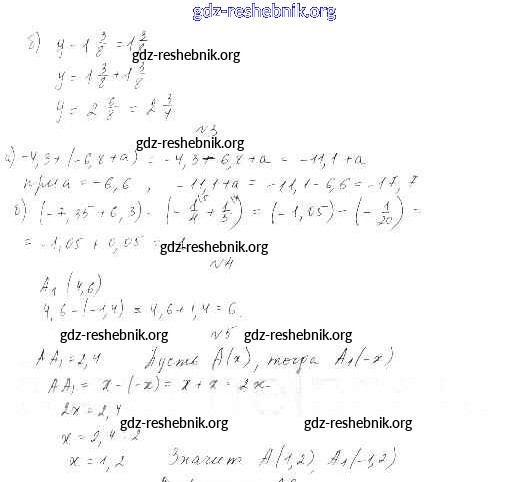 gdz-reshebnik.org
б) y - 1 3/8 = 1 3/8
gdz-reshebnik.org
y = 1 3/8 + 1 3/8
y = 2 6/8 = 2 3/4
№3
gdz-reshebnik.org
а) -4,3 + (-6,8 + a) = -4,3 - 6,8 + a = -11,1 + a
при a = -6,6, -11,1 + a = -11,1 - 6,6 = -17,7
б) (-7,35 + 6,3) - (-1/4 + 1/5) = (-1,05) - (-1/20) =
= -1,05 + 0,05 =
gdz-reshebnik.org
№4
A₁ (4,6)
4,6 - (-1,4) = 4,6 + 1,4 = 6.
gdz-reshebnik.org №5 gdz-reshebnik.org
AA₁ = 2,4 Пусть A(x), тогда A₁(-x)
AA₁ = x - (-x) = x + x = 2x
2x = 2,4
gdz-reshebnik.org gdz-reshebnik.org
x = 2,4 : 2
x = 1,2 Значит A(1,2), A₁(-1,2)
gdz-reshebnik.org